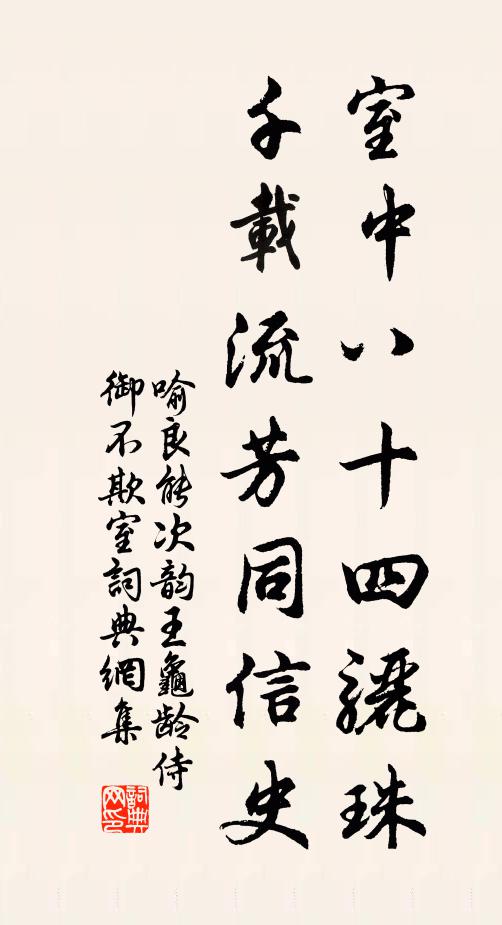 室中八十四驪珠
千載流芳同信史
喻良能次韵王龜龄侍
御不欺室詞典網集
詞典网印